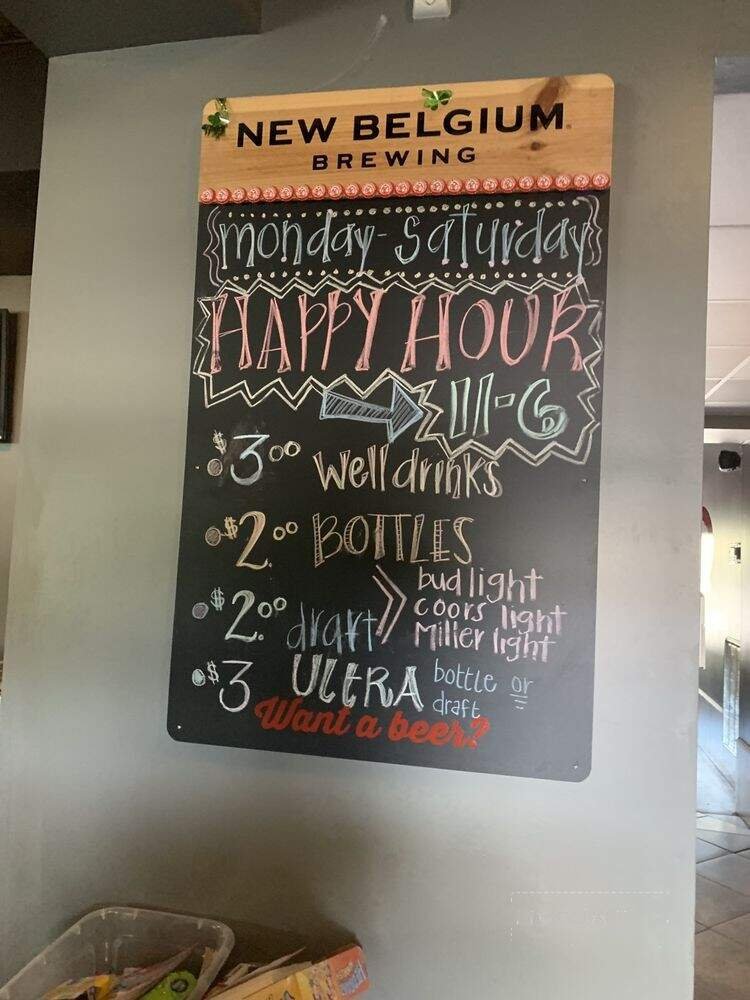 NEW BELGIUM
BREWING
monday-saturday
HAPPY HOUR
11-6
$3.00 well drinks
$2.00 BOTTLES
bud light
$2.00 draft coors light
Miller light
$3 ULtRA bottle or
draft
Want a beer?